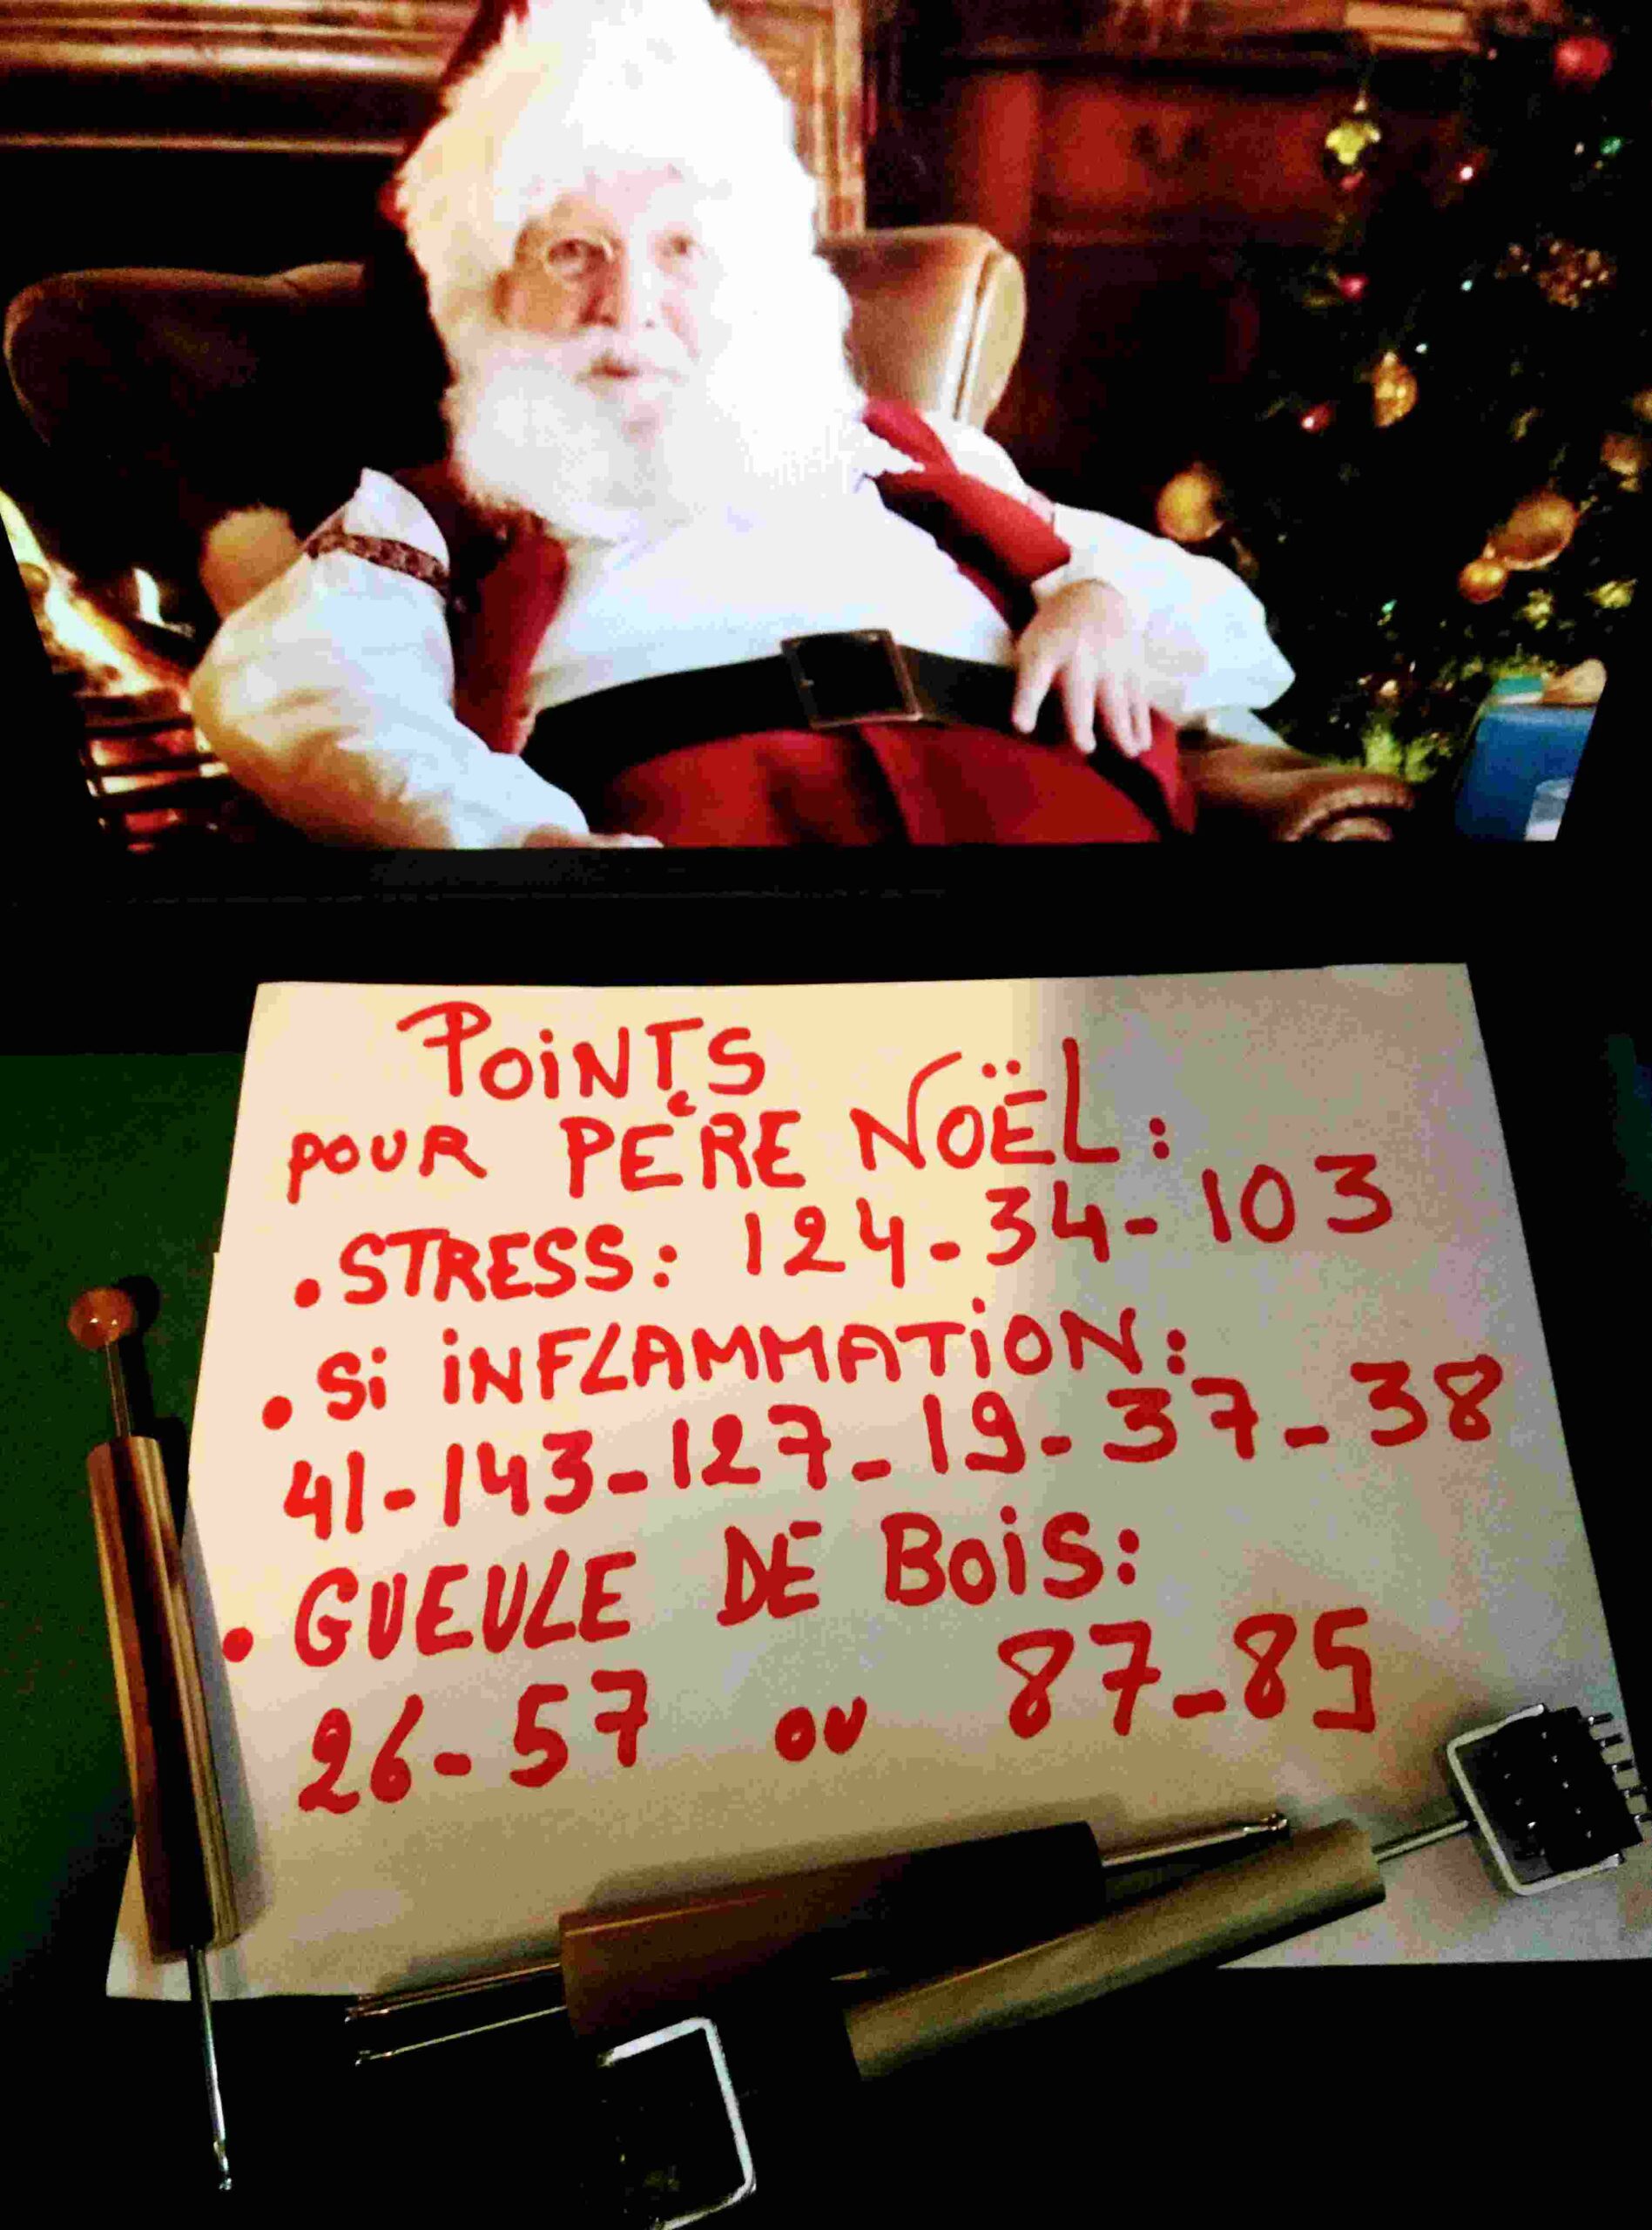 POINTS
POUR PÈRE NOËL:
• STRESS: 124-34-103
• Si iNFLAMMATiON:
41-143-127-19-37-38
• GUEULE DE BOiS:
26-57 ou 87-85